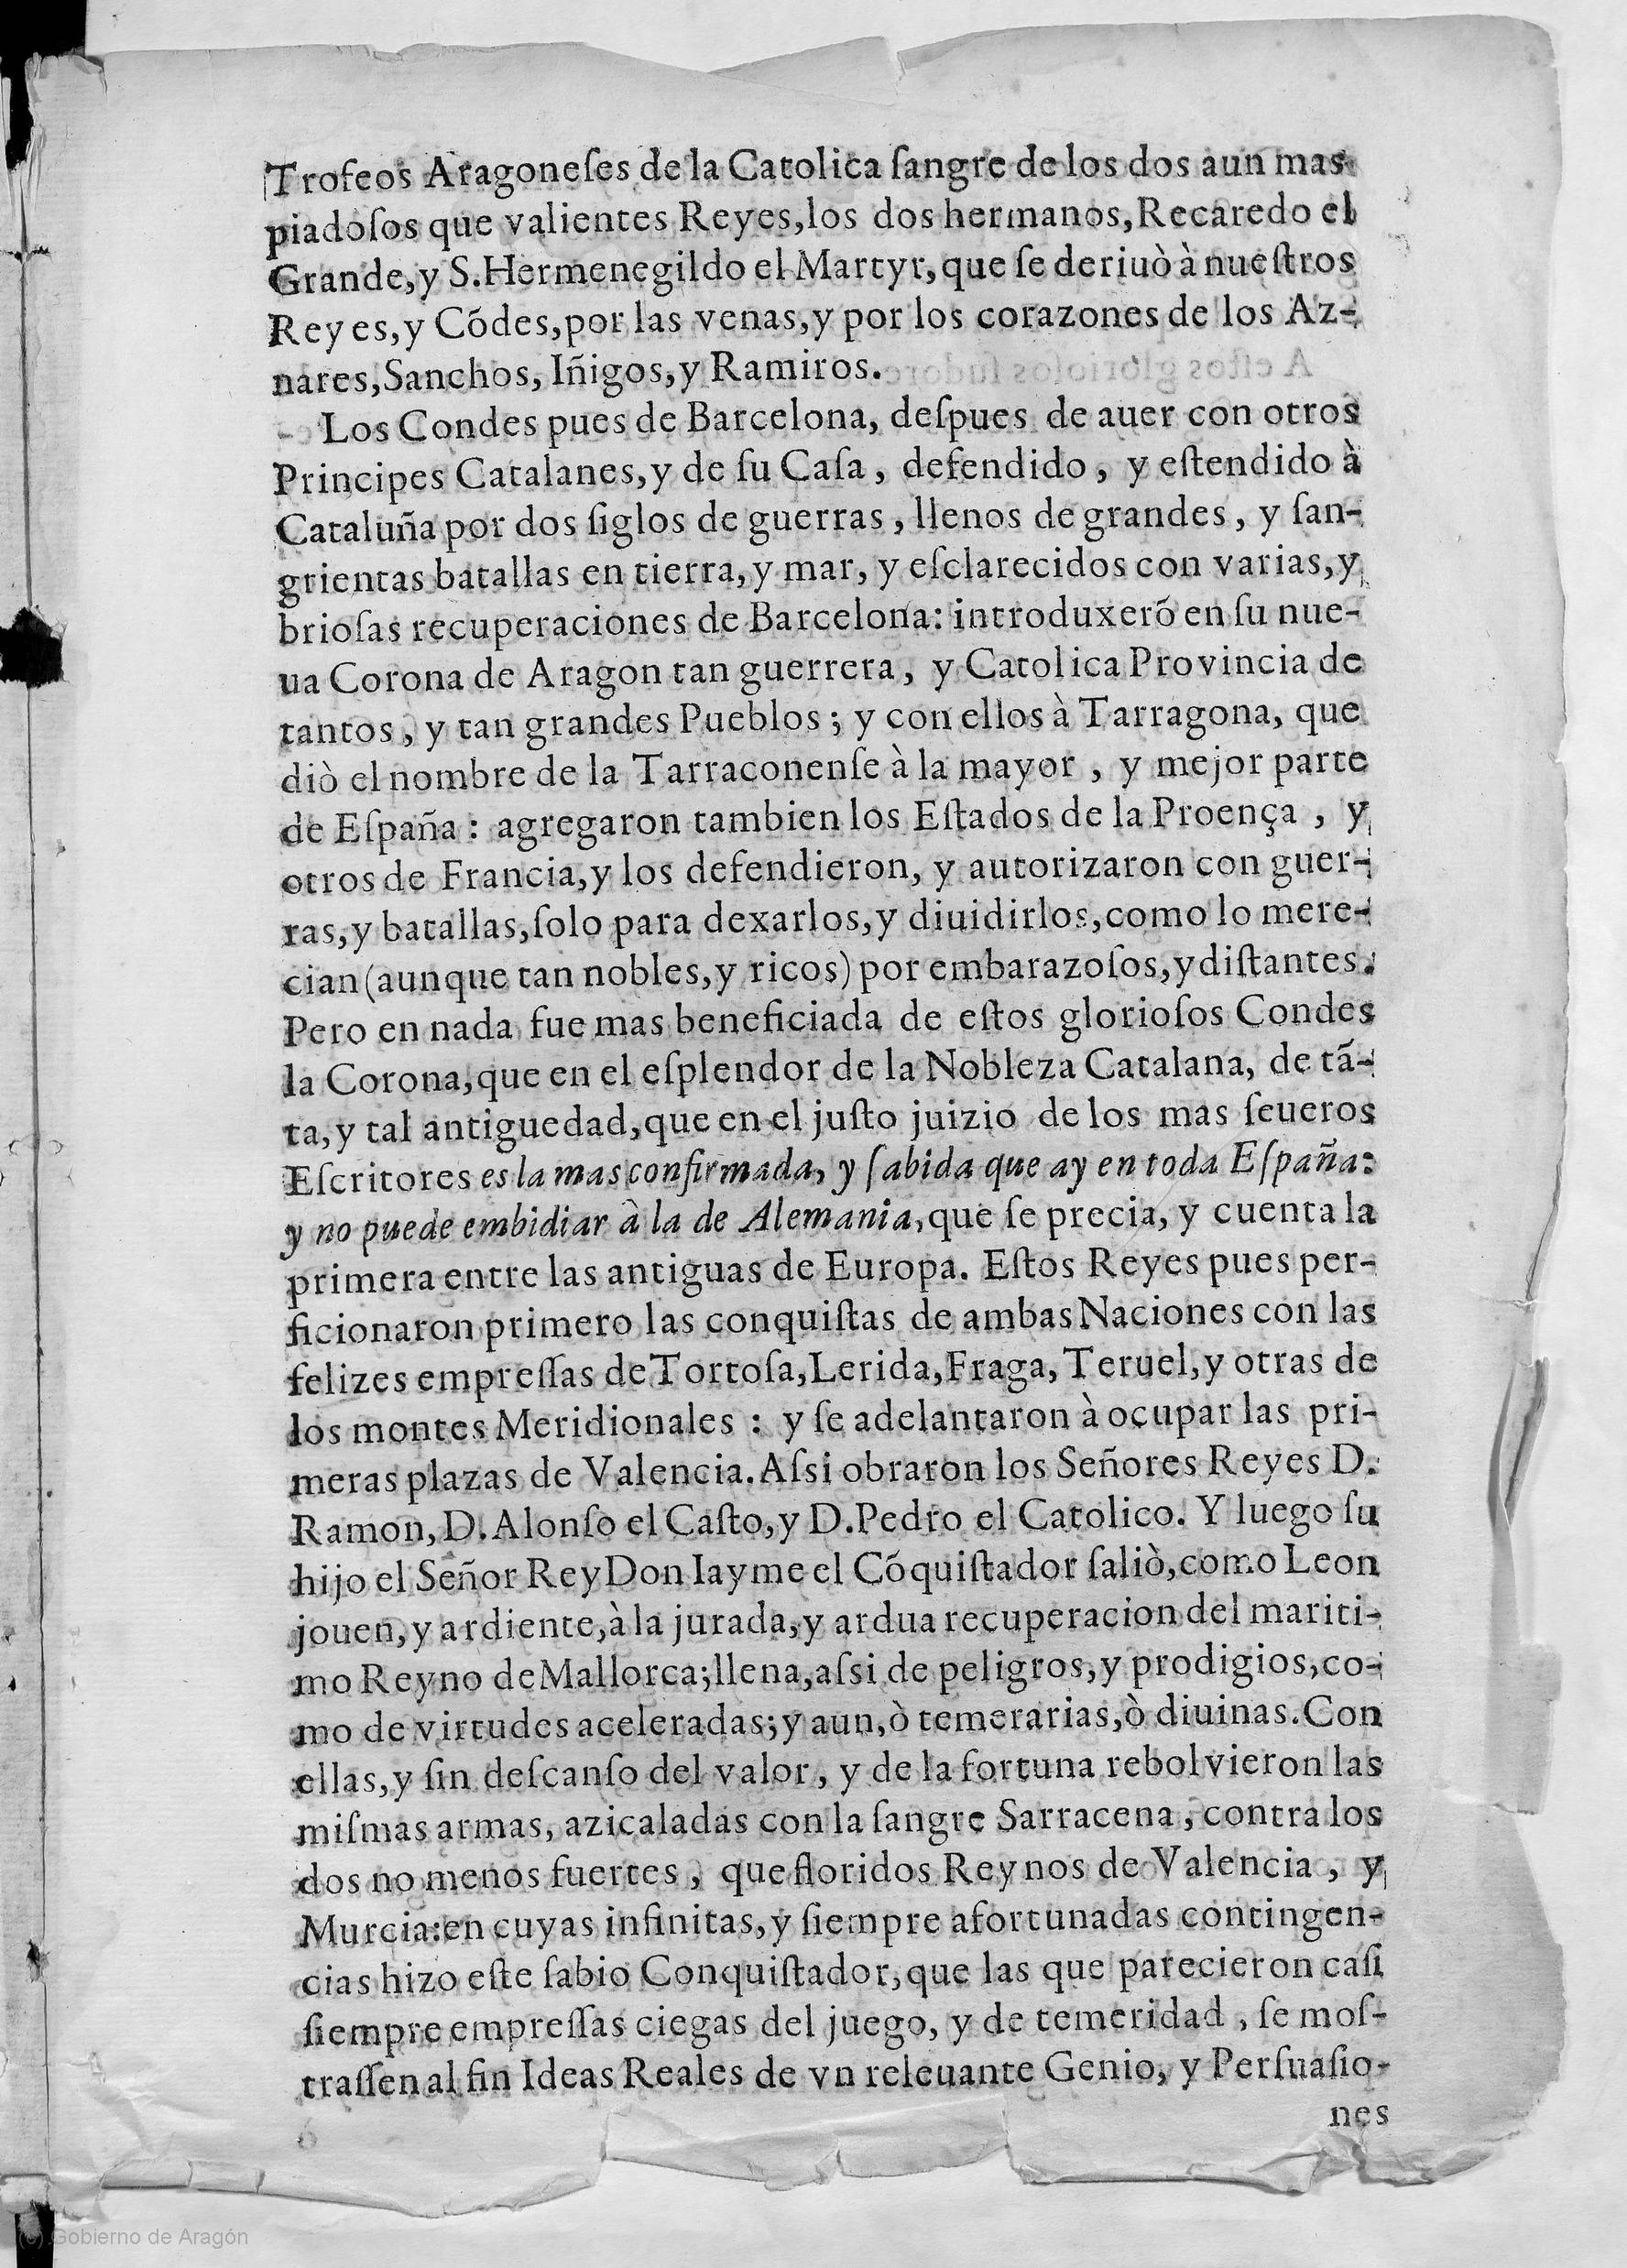 Trofeos Aragoneſes de la Catolica ſangre de los dos aun mas
piadoſos que valientes Reyes,los dos hermanos,Recaredo el
Grande,y S.Hermenegildo el Martyr,que ſe deriuò à nueſtros
Reyes,y Cõdes,por las venas,y por los corazones de los Az-
nares,Sanchos, Iñigos,y Ramiros.
Los Condes pues de Barcelona, deſpues de auer con otros
Principes Catalanes,y de ſu Caſa, defendido, y eſtendido à
Cataluña por dos ſiglos de guerras, llenos de grandes, y ſan-
grientas batallas en tierra,y mar, y eſclarecidos con varias,y
brioſas recuperaciones de Barcelona: introduxerõ en ſu nue-
ua Corona de Aragon tan guerrera, y Catolica Provincia de
tantos, y tan grandes Pueblos; y con ellos à Tarragona, que
diò el nombre de la Tarraconenſe à la mayor, y mejor parte
de Eſpaña: agregaron tambien los Eſtados de la Proença, y
otros de Francia,y los defendieron, y autorizaron con guer-
ras,y batallas,ſolo para dexarlos,y diuidirlos,como lo mere-
cian(aunque tan nobles,y ricos)por embarazoſos,y diſtantes.
Pero en nada fue mas beneficiada de eſtos glorioſos Condes
la Corona,que en el eſplendor de la Nobleza Catalana, de tã-
ta,y tal antiguedad,que en el juſto juizio de los mas ſeueros
Eſcritores es la mas confirmada, y ſabida que ay en toda Eſpaña:
y no puede embidiar à la de Alemania,que ſe precia, y cuenta la
primera entre las antiguas de Europa. Eſtos Reyes pues per-
ficionaron primero las conquiſtas de ambas Naciones con las
felizes empreſſas de Tortoſa,Lerida,Fraga,Teruel,y otras de
los montes Meridionales : y ſe adelantaron à ocupar las pri-
meras plazas de Valencia.Aſsi obraron los Señores Reyes D.
Ramon,D.Alonſo el Caſto,y D.Pedro el Catolico. Y luego ſu
hijo el Señor Rey Don Iayme el Cõquiſtador ſaliò,como Leon
jouen,y ardiente,à la jurada,y ardua recuperacion del mariti-
mo Reyno de Mallorca;llena,aſsi de peligros,y prodigios,co-
mo de virtudes aceleradas;y aun,ò temerarias,ò diuinas.Con
ellas,y ſin deſcanſo del valor, y de la fortuna rebolvieron las
miſmas armas, azicaladas con la ſangre Sarracena, contra los
dos no menos fuertes, que floridos Reynos de Valencia, y
Murcia:en cuyas infinitas,y ſiempre afortunadas contingen-
cias hizo eſte ſabio Conquiſtador,que las que parecieron caſi
ſiempre empreſſas ciegas del juego, y de temeridad, ſe moſ-
traſſen al fin Ideas Reales de vn releuante Genio, y Perſuaſio-
nes
(c) Gobierno de Aragón